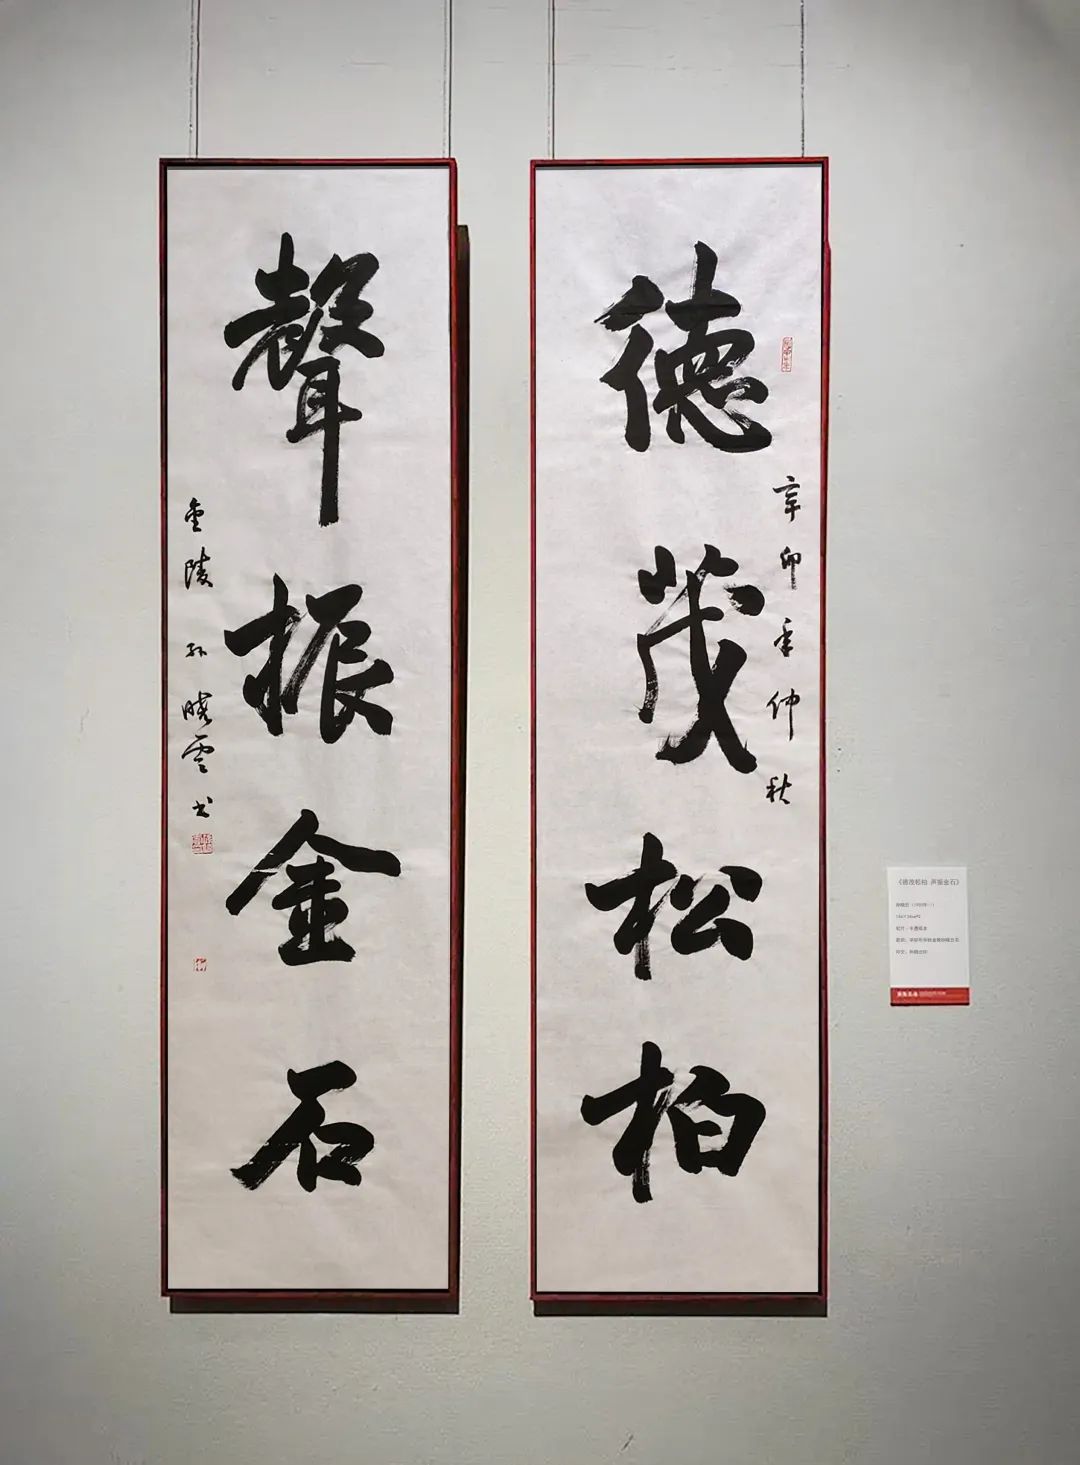 德茂松柏
辛卯年仲秋
聲振金石
金陵孙晓雲书
《德茂松柏 声振金石》